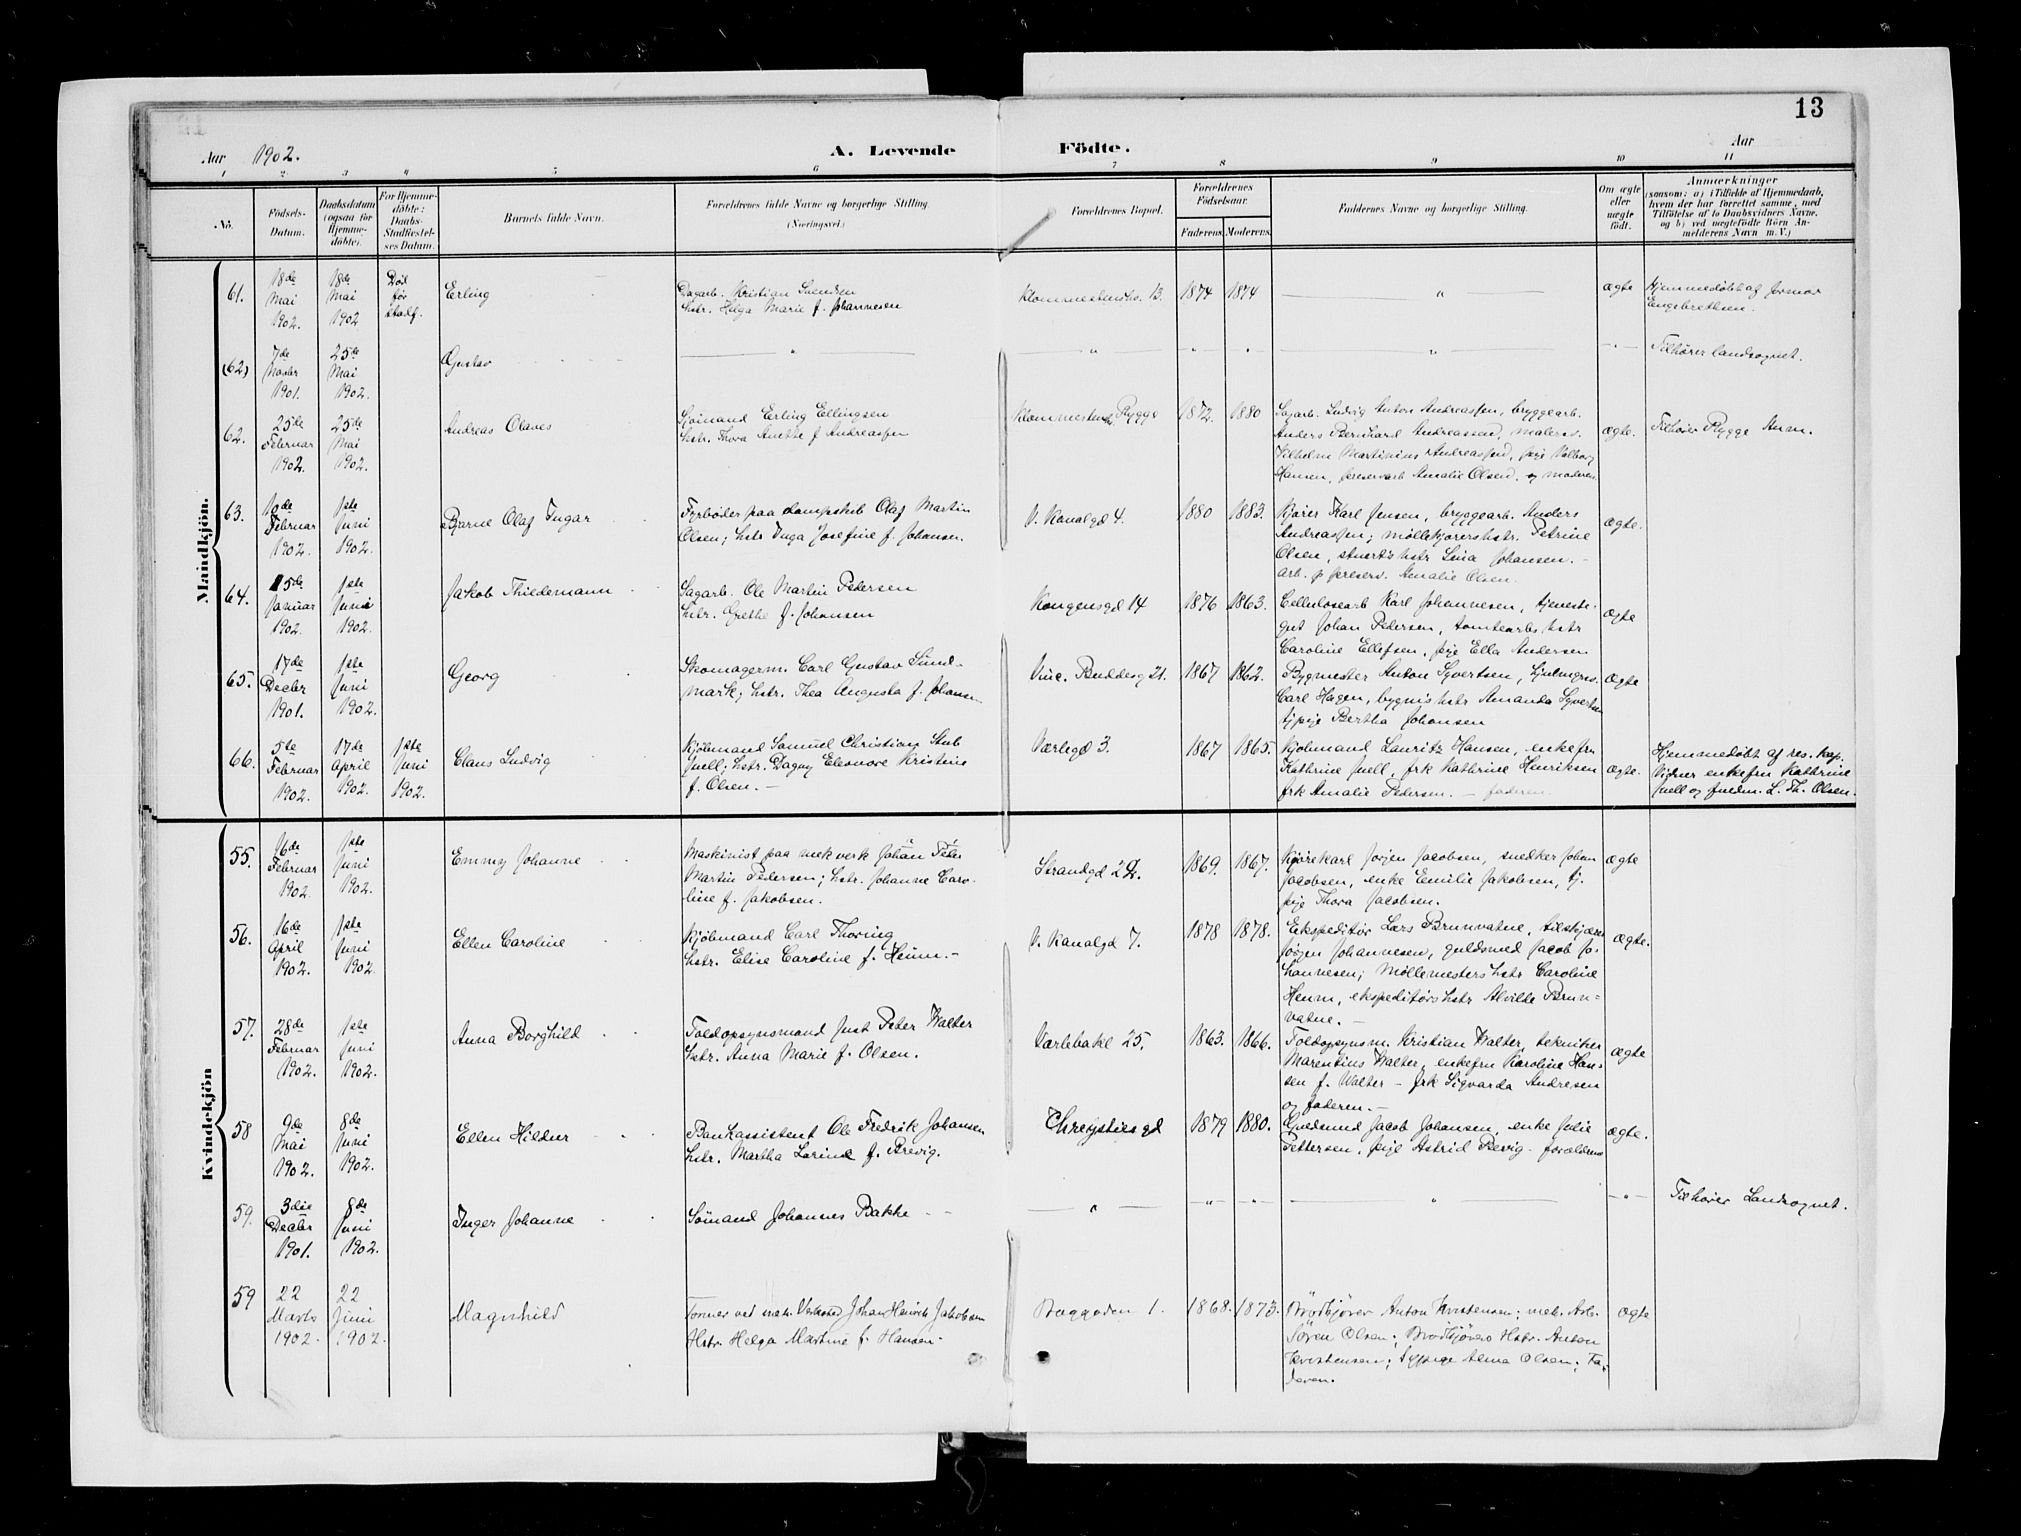 13
Aar 1902.
A. Levende Födte.
Aar
1 2 3 4 5 6 7 8 9 10 11
No.
Födsels-Datum.
Daabsdatum (ogsaa for Hjemme-döbte).
For Hjemme-döbte: Daabs-Stadfæstel-ses Datum.
Barnets fulde Navn.
Forældrenes fulde Navne og borgerlige Stilling. (Næringsvei.)
Forældrenes Bopæl.
Forældrenes Födselsaar.
Faderens. Moderens.
Faddernes Navne og borgerlige Stilling.
Om ægte eller uægte födt.
Anmærkninger
(saasom: a) i Tilfælde af Hjemmedaab,
hvem der har forrettet samme, med
Tilföielse af to Daabsvidners Navne,
og b) ved uægtefödte Börn An-
melderens Navn m. V.)
Mandkjön.
61.
18de Mai 1902.
18de Mai 1902
Död før stadf.
Erling
Dagarb. Kristian Svendsen
hstr. Helga Marie f. Johannesen
Klommestensbo. 13.
1874
1874
"
ægte
Hjemmedöbt af jormor
Engebrethsen.
(62)
7de Novbr 1901.
25de Mai 1902.
Gustav
"
Tilhører landsognet.
62.
25de Februar 1902.
25de Mai 1902.
Andreas Olaves
Sjömand Erling Ellingsen
hstr. Thora Anette f Andreassen
Rygge
1872.
1880
Sagarb. Ludvig Anton Andreassen, bryggearb.
Anders Bernhard Andreassen, malersv.
Vilhelm Martinius Andreassen, pige Valborg
Hansen, preservarb Amalie Olsen. og moderen
ægte.
Tilhører Rygge Anm.
63.
10de Februar 1902.
1ste Juni 1902.
Bjarne Olaf Ingar
Fyrböder paa dampskib Olaf Martin
Olsen; hstr Inga Josefine f. Johansen.
V. Kanalgd 4.
1880
1883.
Kjører Karl Jensen, bryggearb. Anders
Andreassen; møllekjørershstr. Petrine
Olsen, stuerts hstr Lina Johansen. -
arb. p preserv. Amalie Olsen.
ægte.
64.
15de Januar 1902.
1ste Juni 1902.
Jakob Thiedemann
Sagarb. Ole Martin Pedersen
hstr. Grethe f. Johansen
Kongensgd 14
1876
1863.
Cellulosearb Karl Johannesen, tjeneste-
gut Johan Pedersen, tomtearbs hstr
Caroline Ellefsen, pige Ella Andersen
ægte
65.
17de Decbr 1901.
1ste Juni 1902.
Georg
Skomagerm. Carl Gustav Sund-
mark; hstr. Thea Augusta f. Johansen
Vinc. Buddesg 21.
1867
1862.
Bygmester Anton Syvertsen,
Carl Hagen, bygm's hstr Amanda Syvertsen
tj pige Bertha Johansen
ægte
66.
5te Februar 1902.
17de April 1902.
1ste Juni 1902.
Claus Ludvig
Kjöbmand Samuel Christian Stub
Juell; hstr. Dagny Eleonore Kristine
f. Olsen. -
Værlegd 3.
1867
1865.
Kjøbmand Lauritz Hansen, enkefru
Kathrine Juell, frk Kathrine Henriksen
frk Amalie Pedersen. - faderen.
ægte.
Hjemmedöbt af res. kap.
Vidner enkefru Kathrine
Juell og L. Th. Olsen.
Kvindekjön
55.
16de Februar 1902.
1ste Juni 1902.
Emmy Johanne
Maskinist paa mek verk Johan Peter
Martin Pedersen; hstr. Johanne Caro-
line f. Jakobsen.
Strandgd 22.
1869.
1867.
Kjørekarl Jørgen Jacobsen, snedker Johan
Jacobsen, enke Emilie Jakobsen, tj.
pige Thora Jacobsen.
ægte
56.
16de April 1902.
1ste Juni 1902.
Ellen Caroline
Kjöbmand Carl Thoring
hstr. Elise Caroline f. Heum. -
V. Kanalgd 7.
1878
1878.
Ekspeditör Lars Brunvatne, tilskjærer
Jørgen Johannesen, guldsmed Jacob Jo-
hannesen; Møllemesters hstr Caroline
Heum, ekspeditörs hstr Alvilde Brun-
vatne. -
ægte.
57.
28de Februar 1902.
1ste Juni 1902.
Anna Borghild
Toldopsynsmand Just Peter Walter
hstr. Anna Marie f. Olsen.
Værlebakl 25.
1863.
1866.
Toldopsynsm. Kristian Walter, tekniker
Marentius Walter, enkefru Karoline Han-
sen f. Walter - frk Sigvarda Andresen
og faderen. -
ægte
58
9de Mai 1902.
8de Juni 1902.
Ellen Hildur
Bankassistent Ole Fredrik Johansen
hstr. Martha Lorine f. Brevig.
Chrystiesgd
1879
1880.
Guldsmd Jacob Johansen, enke Julie
Pettersen, pige Astrid Bevig - forældrene
ægte.
59.
3die Decbr 1901.
8de Juni 1902.
Inger Johanne
Sömand Johannes Bakke
"
Tilhører Landsognet.
59
22 Marts 1902.
22 Juni 1902.
Magnhild
Former ved mek. Verksted Johan Henrik Jakobsen
Hstr. Helga Martine f. Hansen.
Baggaden 1.
1868.
1873.
Brødkjører Anton Kristensen; mek. Arb.
Søren Olsen; Brødkjørers Hstr. Anton
Kristensen; Sypige Alma Olsen; Fa-
deren.
ægte